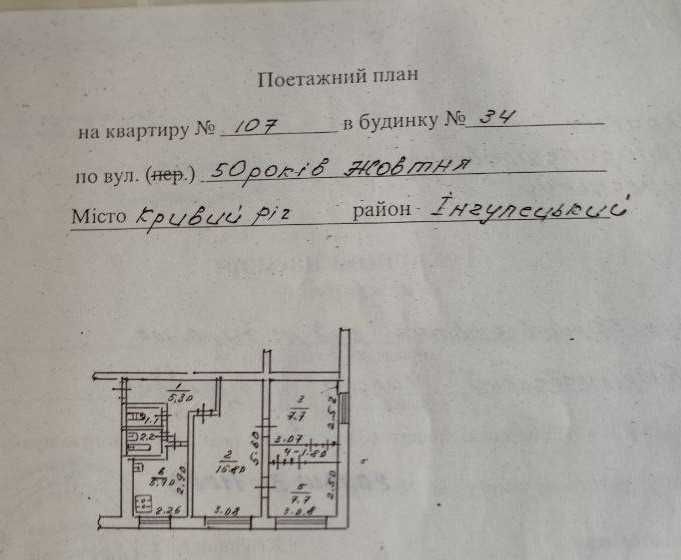 Поетажний план
на квартиру № 107 в будинку № 34
по вул. (пер.) 50 років Жовтня
Місто Кривий ріг район - Інгулецький
1
5.30
3
7.7
2.52
1.1
2.2
2.07
2
16.80
5.60
4-1.80
6
2.90
5
7.7
2.50
2.26
3.08
3.08